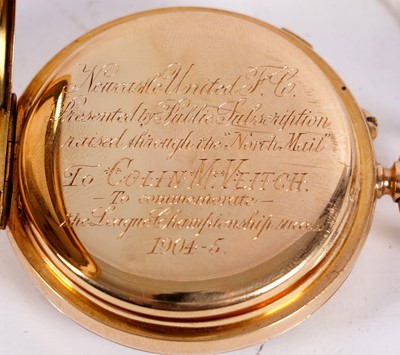 Newcastle United F.C.
Presented by Public Subscription
raised through the "North Mail"
To COLIN M. VEITCH.
To commemorate
the League Championship
1904-5.